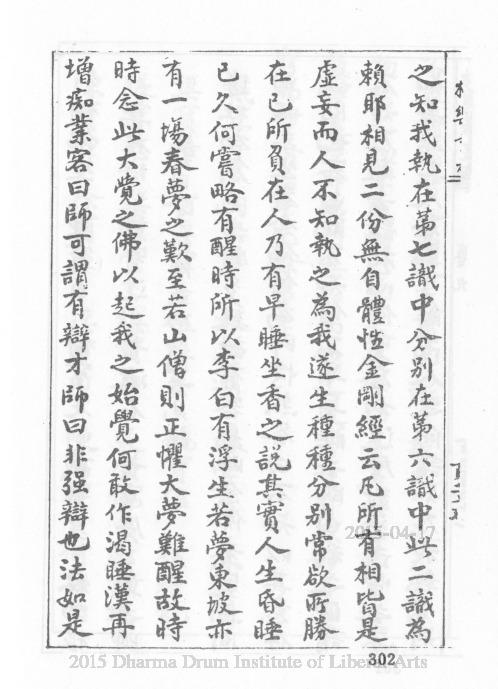 之知我執在第七識中分別在第六識中此二識為
賴耶相見二份無自體性金剛經云凡所有相皆是
虛妄而人不知執之為我遂生種種分別常欲所勝
在己所負在人乃有早睡坐香之說其實人生昏睡
已久何嘗略有醒時所以李白有浮生若夢東坡亦
有一場春夢之歎至若山僧則正懼大夢難醒故時
時念此大覺之佛以起我之始覺何敢作渴睡漢再
增痴業客曰師可謂有辯才師曰非强辯也法如是
2015-04-17
302
2015 Dharma Drum Institute of Liberal Arts